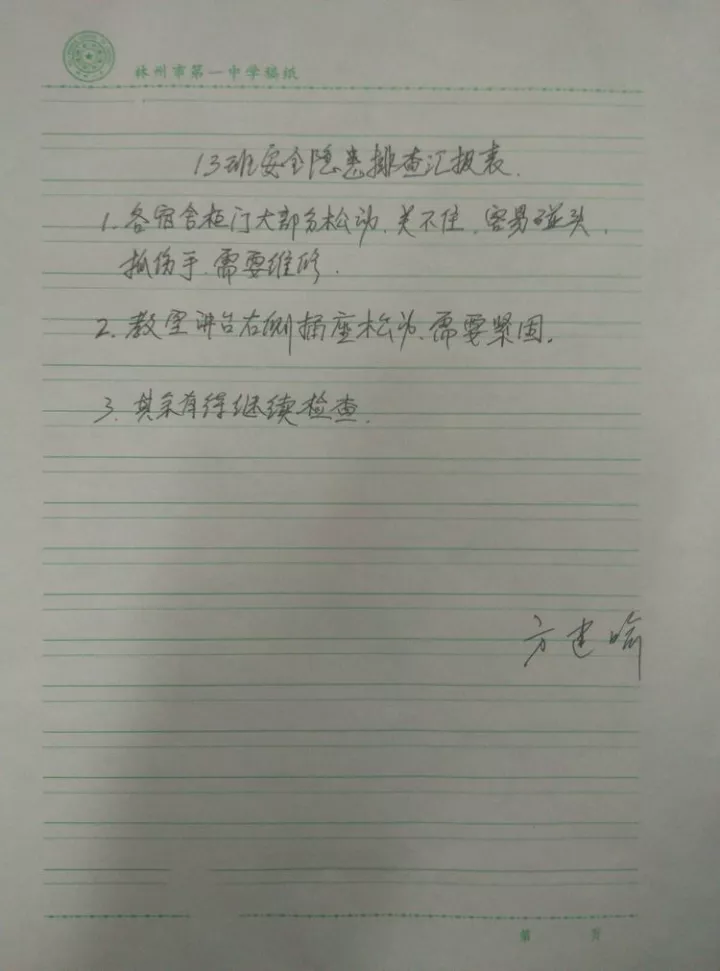 林州市第一中学稿纸
13班安全隐患排查汇报表.
1. 各宿舍柜门大部分松动、关不住,容易碰头,
抓伤手.需要维修.
2. 教室讲台右侧插座松动、需要紧固.
3. 其余有待继续检查.
方建
第 页